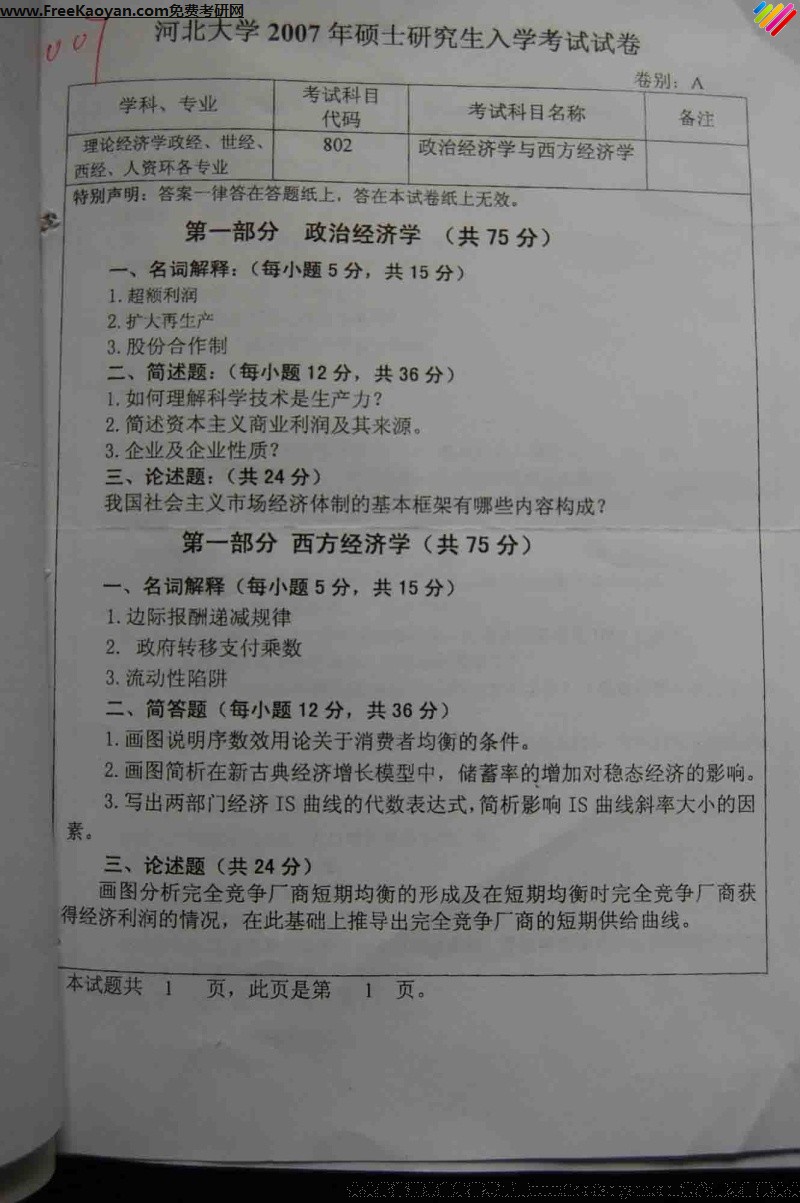 www.FreeKaoyan.com免费考研网
007
河北大学 2007 年硕士研究生入学考试试卷
卷别：A
学科、专业 考试科目代码 考试科目名称 备注
理论经济学政经、世经、西经、人资环各专业 802 政治经济学与西方经济学
特别声明：答案一律答在答题纸上，答在本试卷纸上无效。
第一部分 政治经济学 （共 75 分）
一、名词解释：（每小题 5 分，共 15 分）
1. 超额利润
2. 扩大再生产
3. 股份合作制
二、简述题：（每小题 12 分，共 36 分）
1. 如何理解科学技术是生产力？
2. 简述资本主义商业利润及其来源。
3. 企业及企业性质？
三、论述题：（共 24 分）
我国社会主义市场经济体制的基本框架有哪些内容构成？
第一部分 西方经济学（共 75 分）
一、名词解释（每小题 5 分，共 15 分）
1. 边际报酬递减规律
2. 政府转移支付乘数
3. 流动性陷阱
二、简答题（每小题 12 分，共 36 分）
1. 画图说明序数效用论关于消费者均衡的条件。
2. 画图简析在新古典经济增长模型中，储蓄率的增加对稳态经济的影响。
3. 写出两部门经济 IS 曲线的代数表达式，简析影响 IS 曲线斜率大小的因
素。
三、论述题（共 24 分）
画图分析完全竞争厂商短期均衡的形成及在短期均衡时完全竞争厂商获
得经济利润的情况，在此基础上推导出完全竞争厂商的短期供给曲线。
本试题共 1 页，此页是第 1 页。